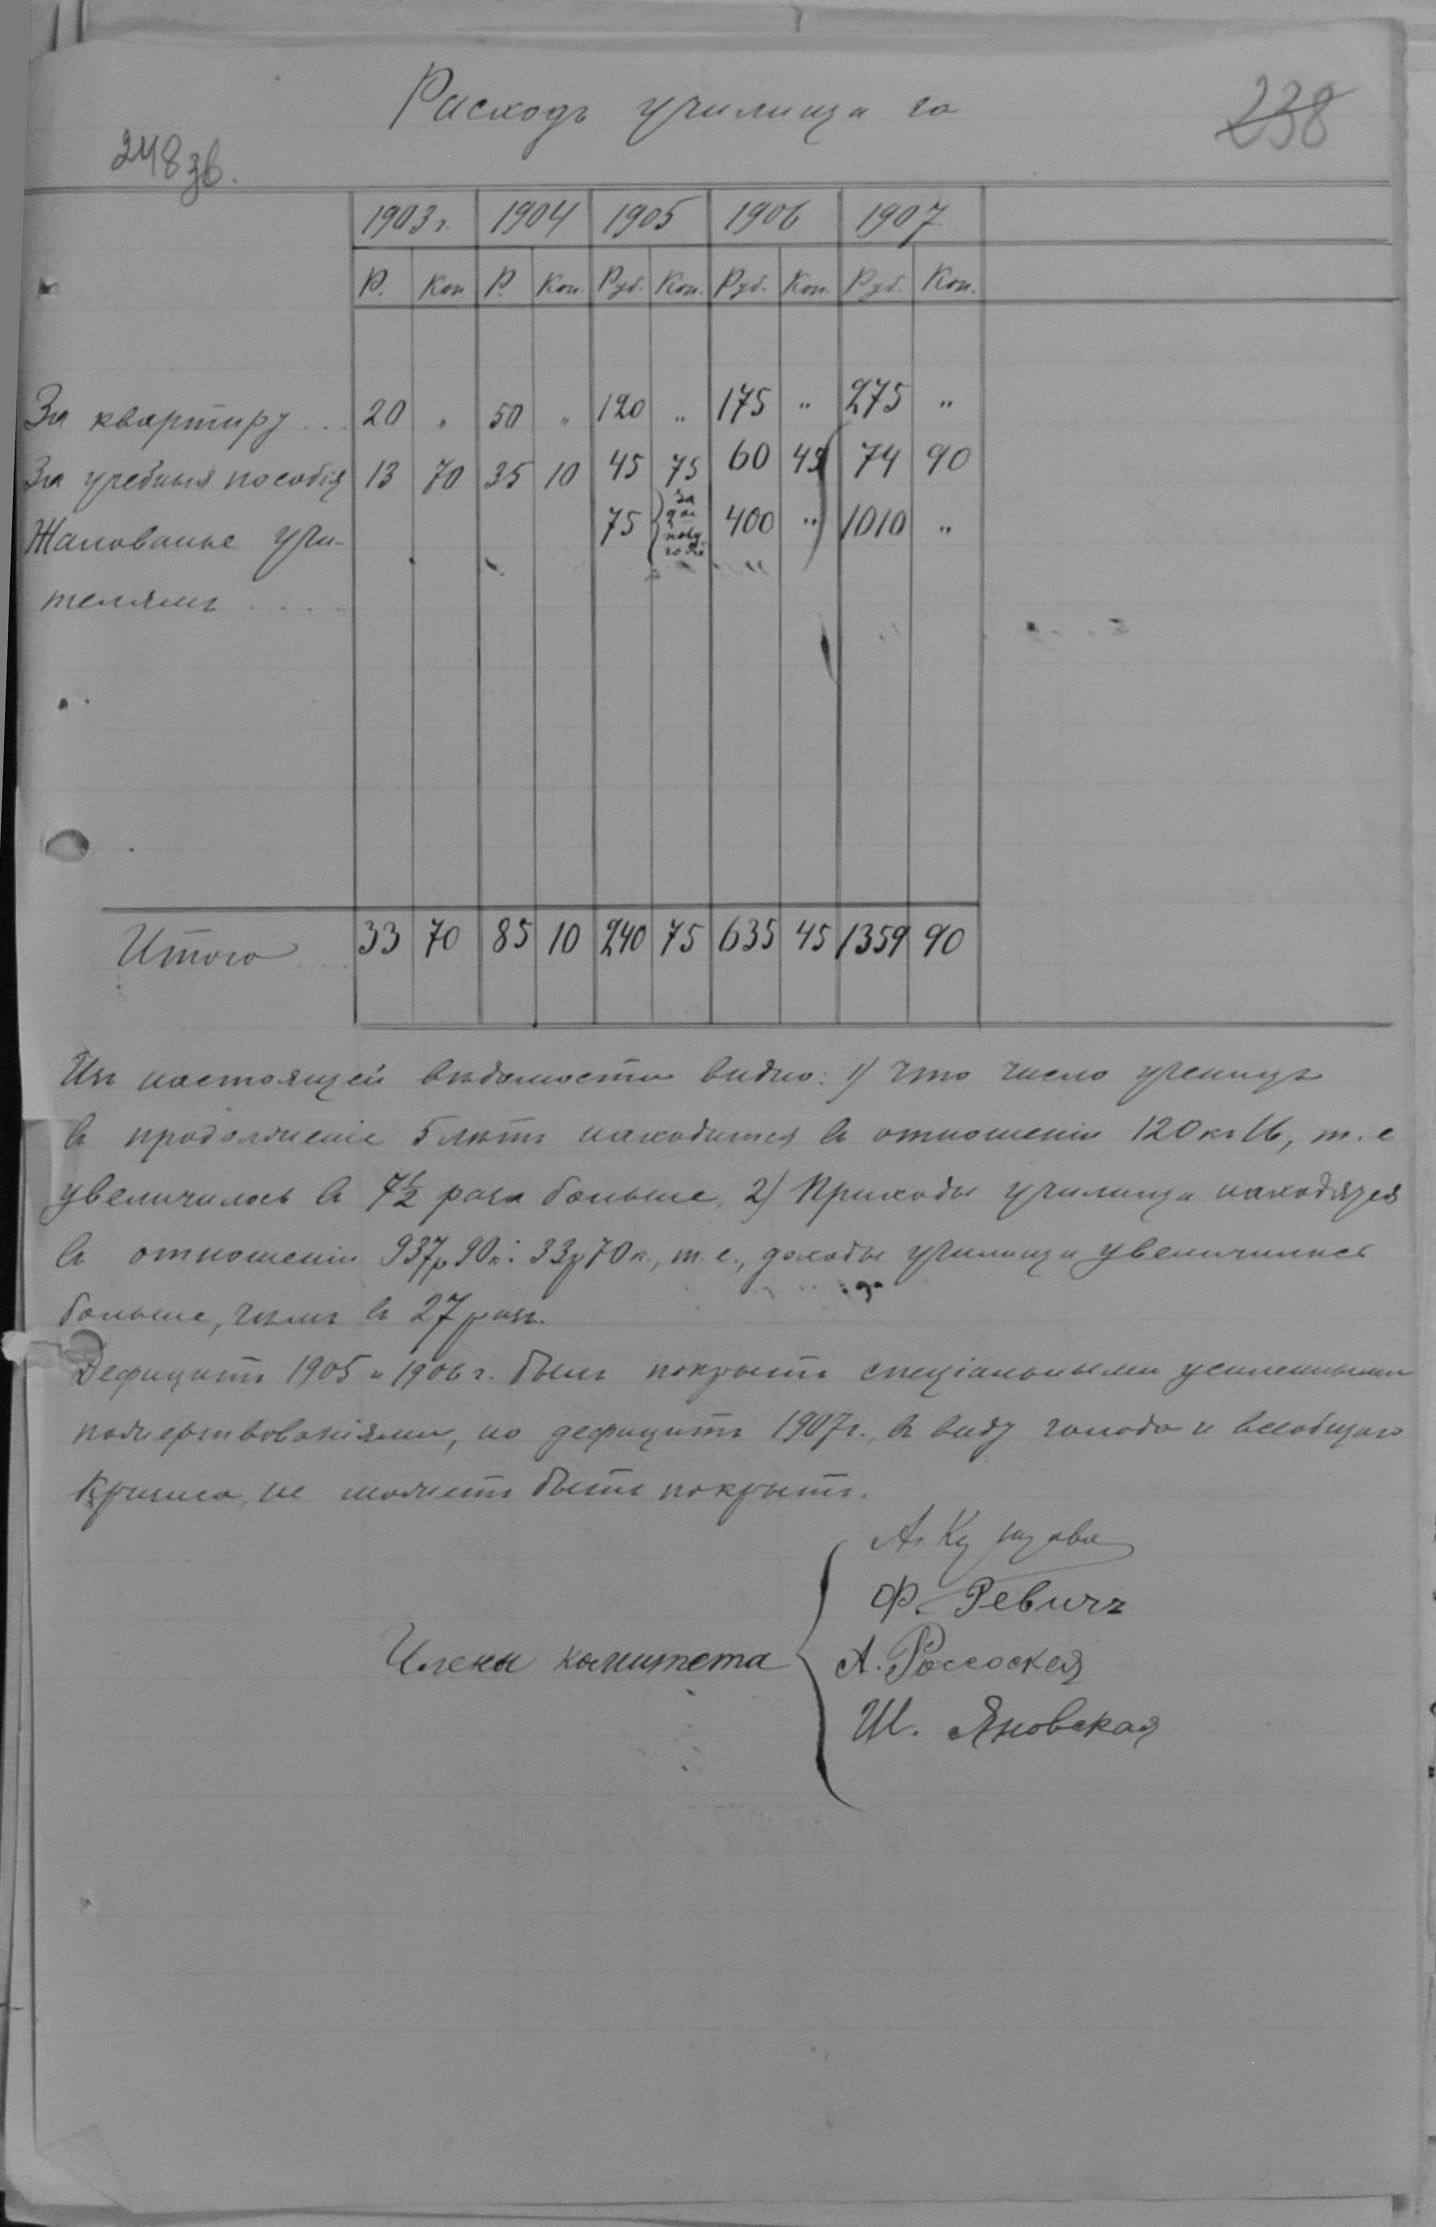 Расходъ училища за
238
248 зв.
1903 г. 1904 1905 1906 1907
Р. Коп Р. Коп. Руб. Коп. Руб. Коп. Руб. Коп.
За квартиру ... 20 " 50 " 120 " 175 " 275 "
За учебныя пособія 13 70 35 10 45 75 60 45 74 90
Жалованье учи- 75 за 400 " 1010 "
полу
годіе
телямъ .....
Итого 33 70 85 10 240 75 635 45 1359 90
Изъ настоящей вѣдомости видно: 1) что число ученицъ
въ продолженіе 5 лѣтъ находится въ отношеніи 120 къ 16, т. е
увеличилось въ 7½ раза больше, 2) Приходы училища находятся
въ отношеніи 937р 90к: 33р 70к., т. е., доходы училища увеличились
больше, чѣмъ въ 27 разъ.
Дефицитъ 1905 и 1906 г. былъ покрытъ спеціальными усиленными
пожертвованіями, но дефицитъ 1907 г., въ виду голода и всеобщаго
кризиса, не можетъ быть покрытъ.
Ф. Ревичъ
Члены комитета А. Россоская
Ш. Яновская